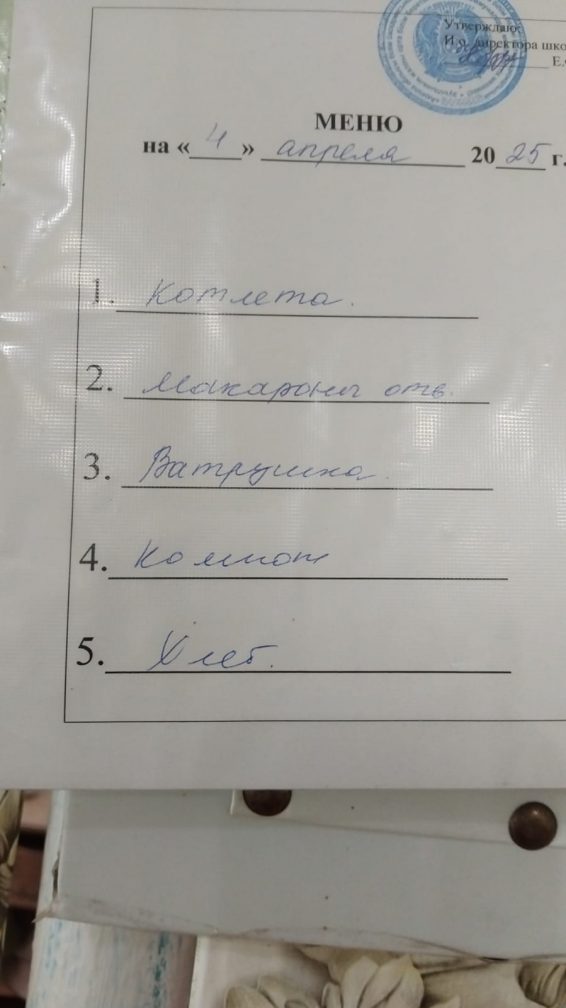 Утверждаю:
И.о. директора шко
Е.
МЕНЮ
на «4» апреля 2025 г.
1. Котлета.
2. Макароны отв.
3. Ватрушка.
4. Компот
5. Хлеб.